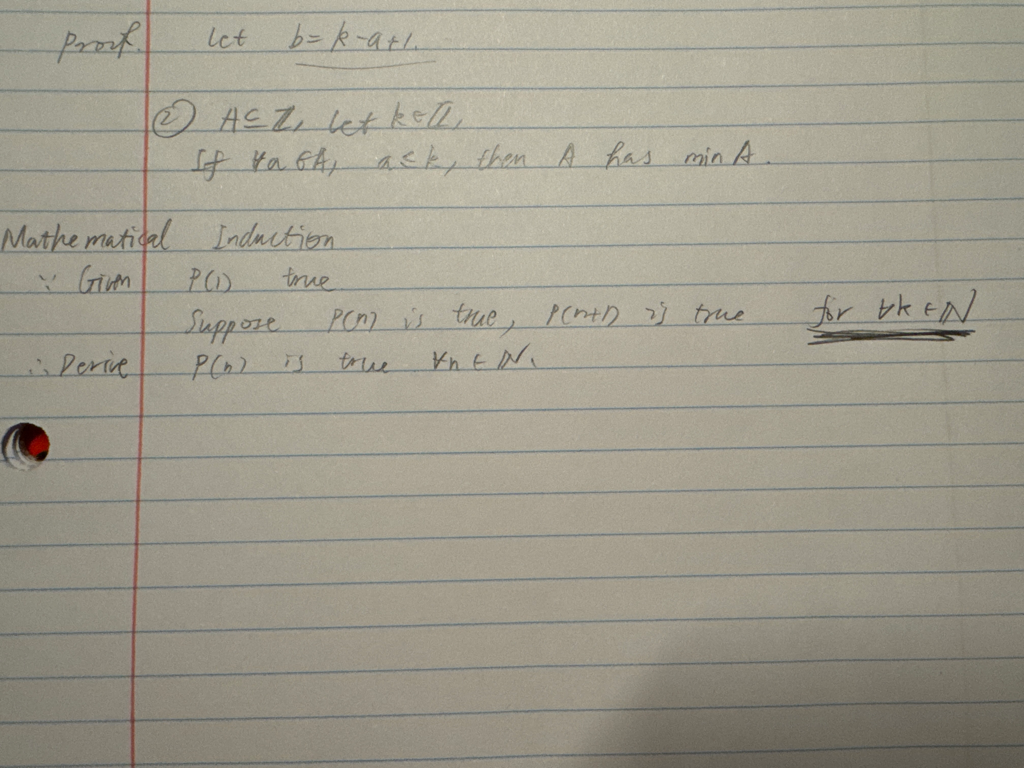 Proof. Let b = k-a+1.
② A⊆ℤ, Let k∈ℤ,
If ∀a∈A, a≤k, then A has min A.
Mathematical Induction
∵ Given P(1) true
Suppose P(n) is true, P(n+1) is true for ∀k∈ℕ
∴ Derive P(n) is true ∀n∈ℕ.